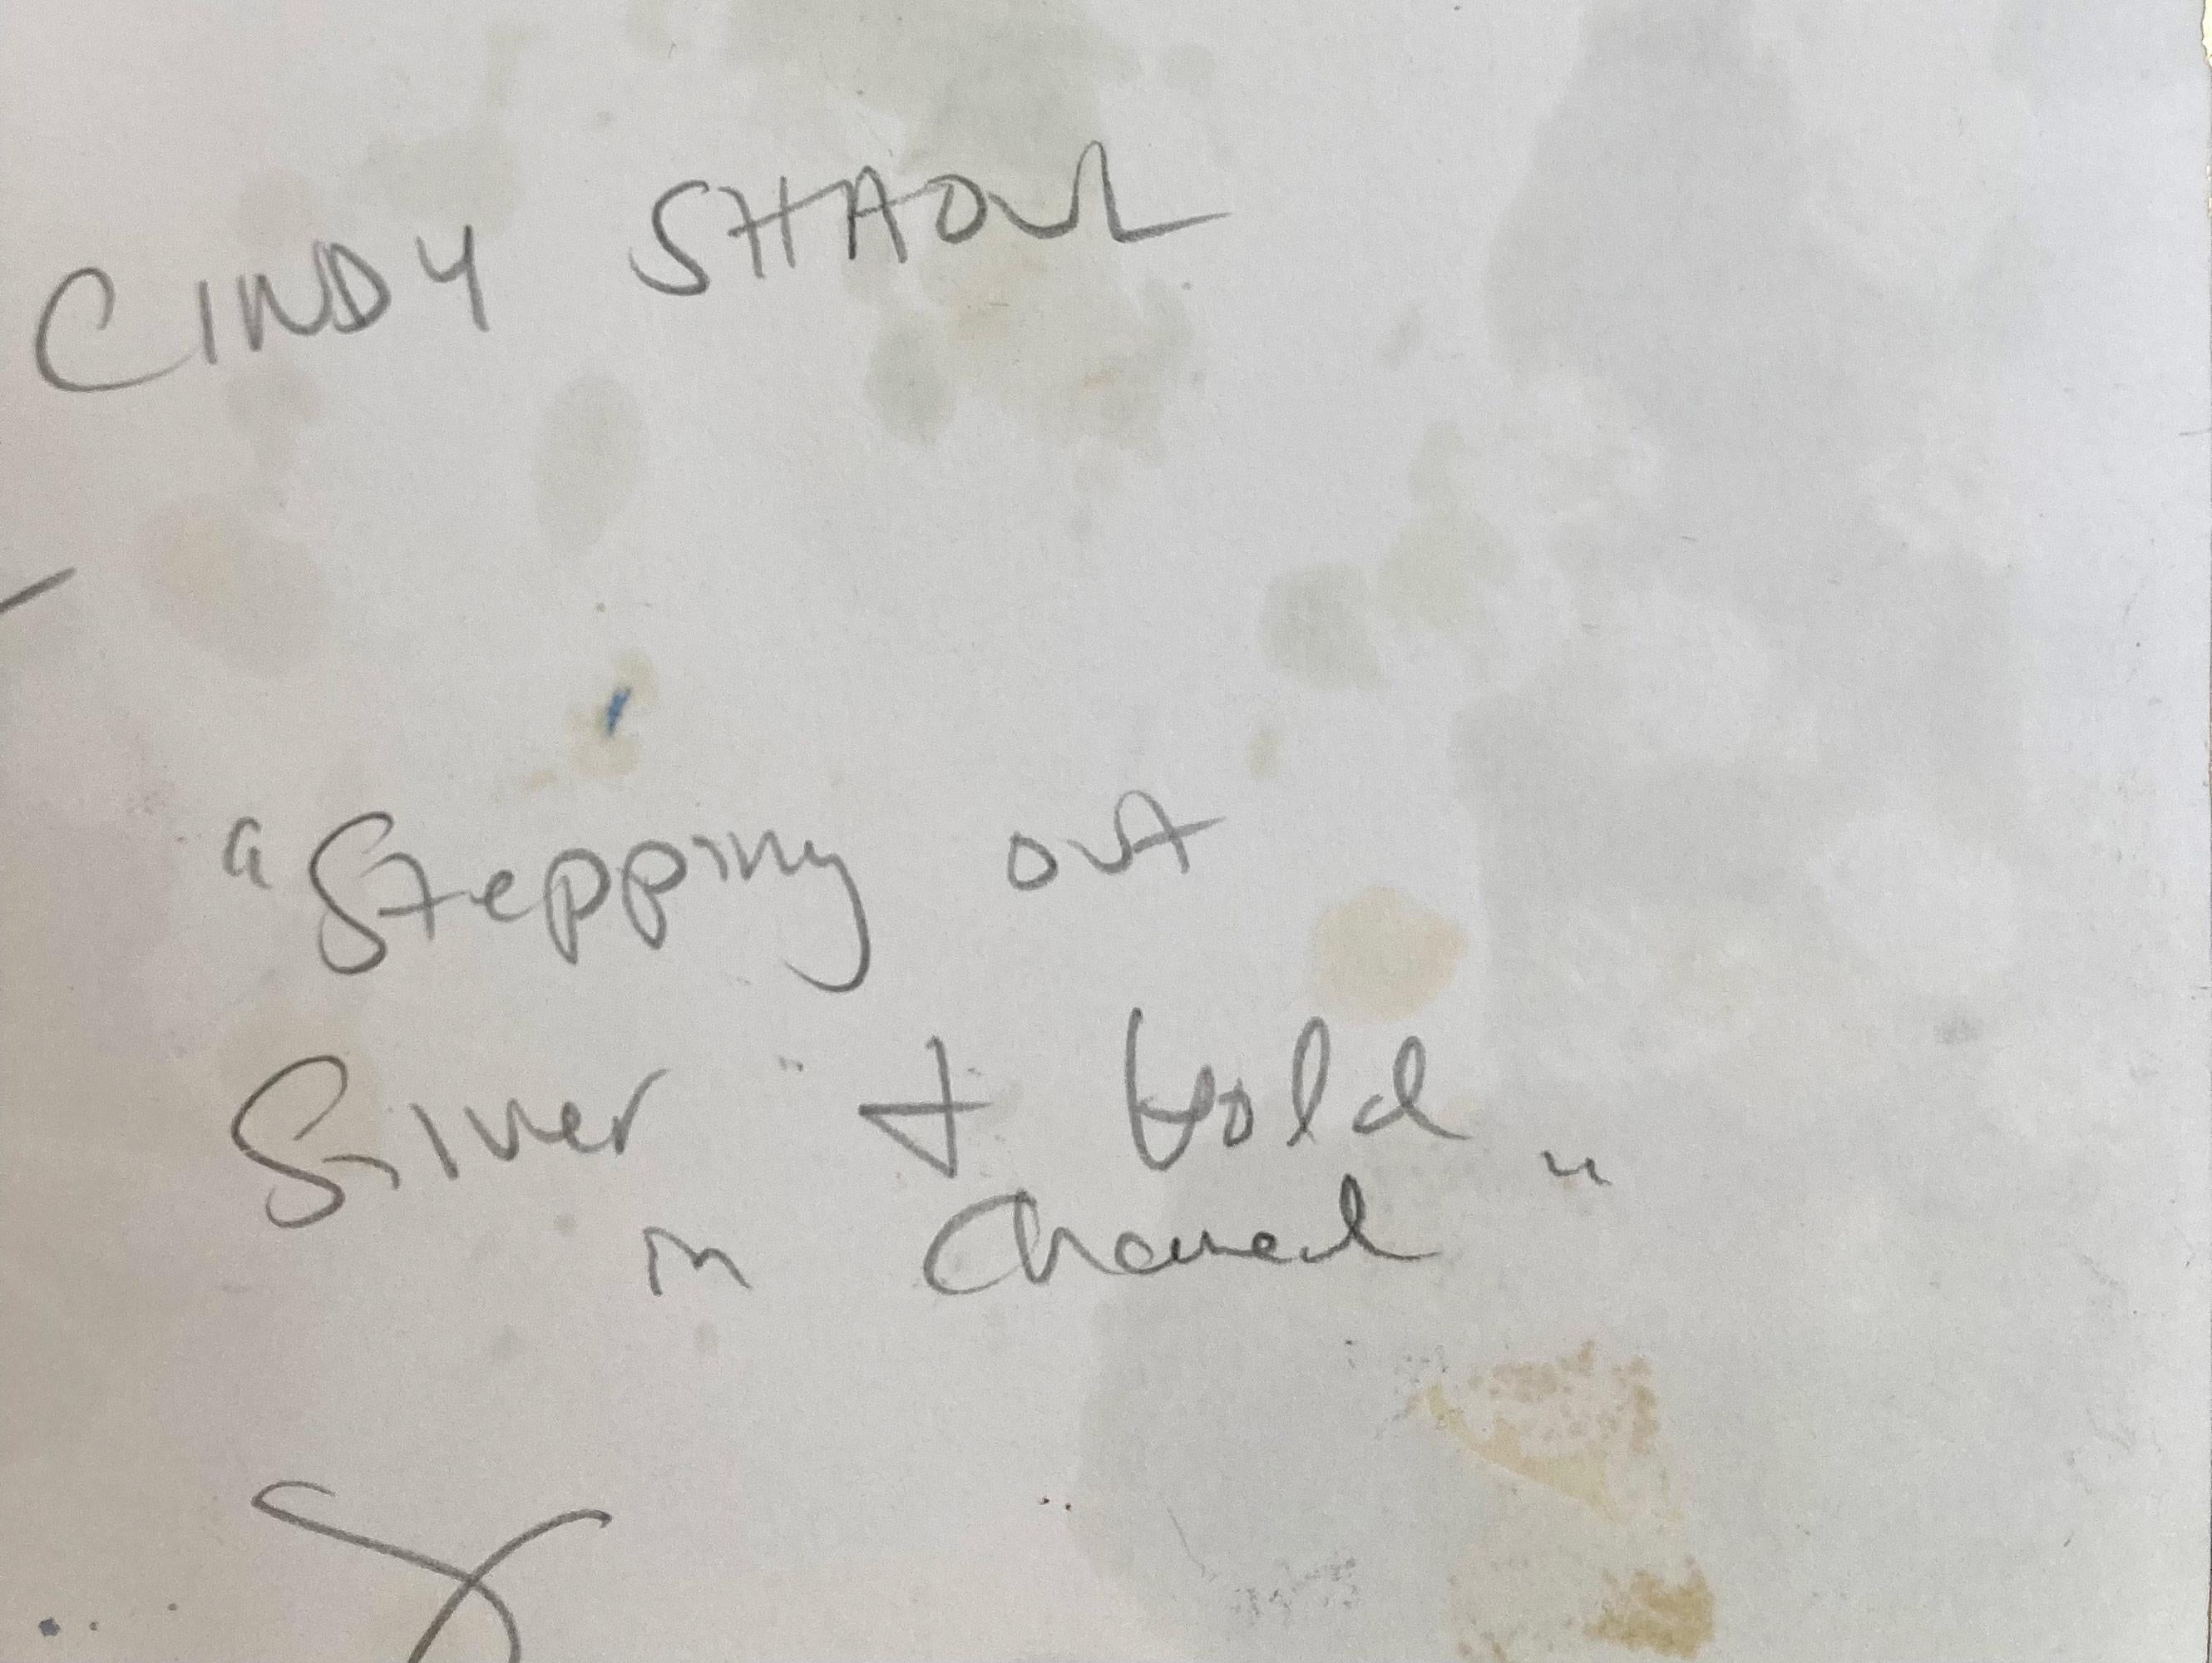 CINDY SHAOUL
"Stepping out
Silver + Gold
in Chanel"